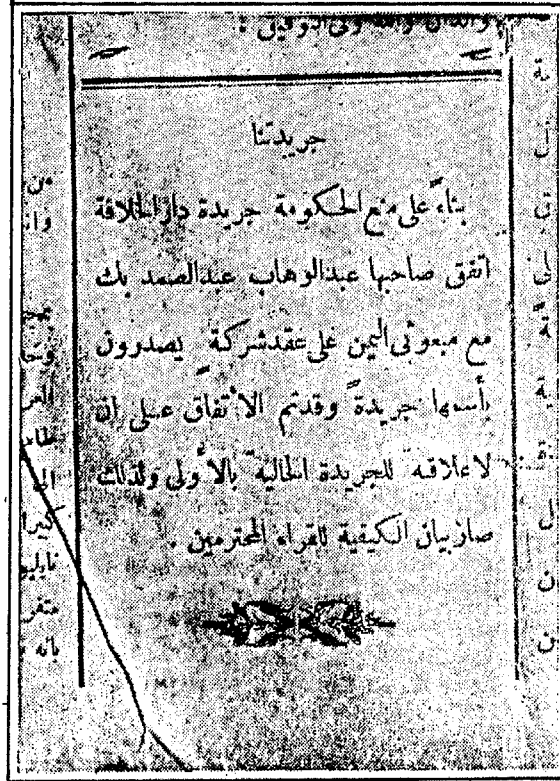 والله ولى التوفيق :
جريدتنا
بناء على منع الحكومة جريدة دار الخلافة
اتفق صاحبها عبدالوهاب عبدالصمد بك
مع مبعوثى اليمن على عقد شركة يصدرون
بأسمها جريدةً وقد تم الأتفاق على ان
لاعلاقة للجريدة الحالية بالأولى ولذلك
صار بيان الكيفية للقراء المحترمين .